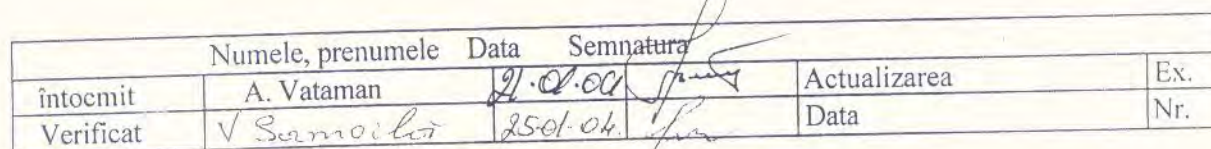 Numele, prenumele Data Semnatura
întocmit A. Vataman Actualizarea Ex.
Verificat V Samoilă 25-01-04. Data Nr.